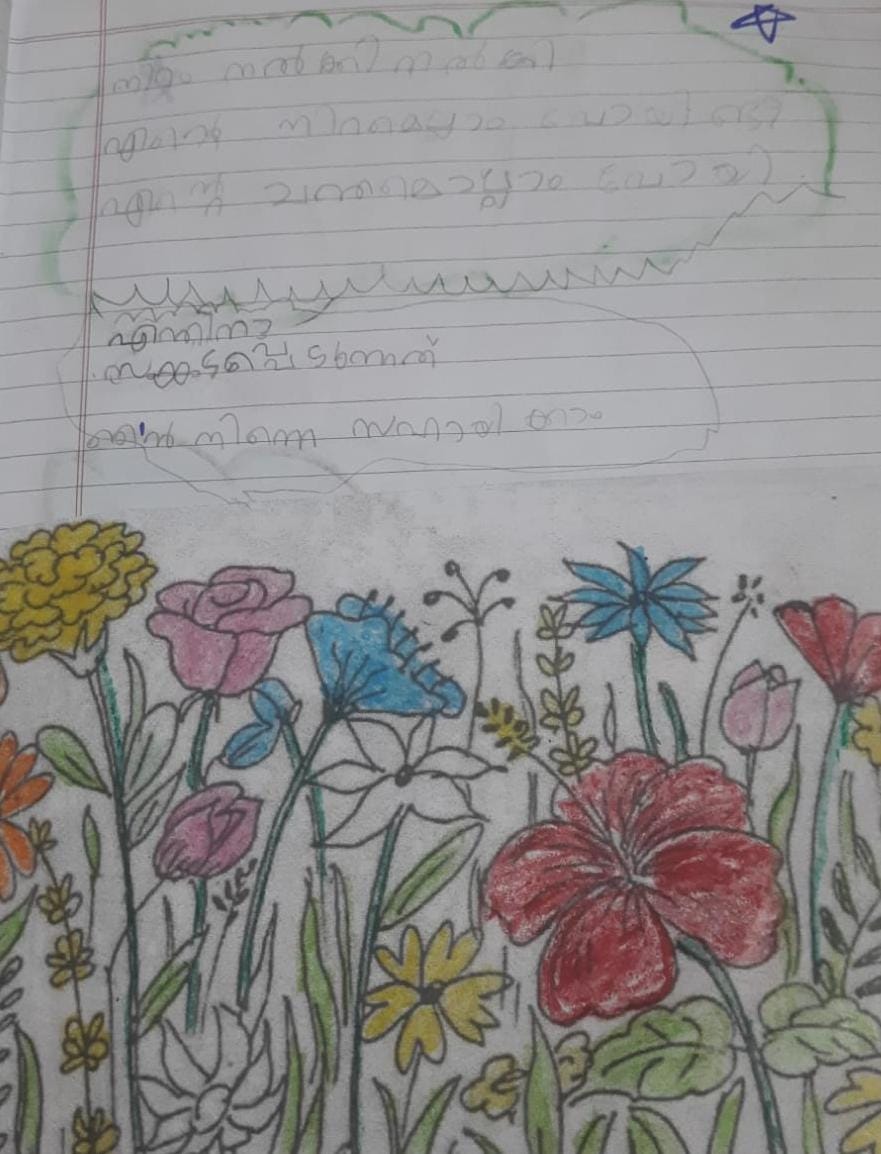 നിറം നൽകി നൽകി
എന്റെ നിറമെല്ലാം പോയി
എന്റെ ചന്തമെല്ലാം പോയി
എന്തിനാ
സങ്കടപ്പെടുന്നത്
ഞാൻ നിന്നെ സഹായിക്കാം